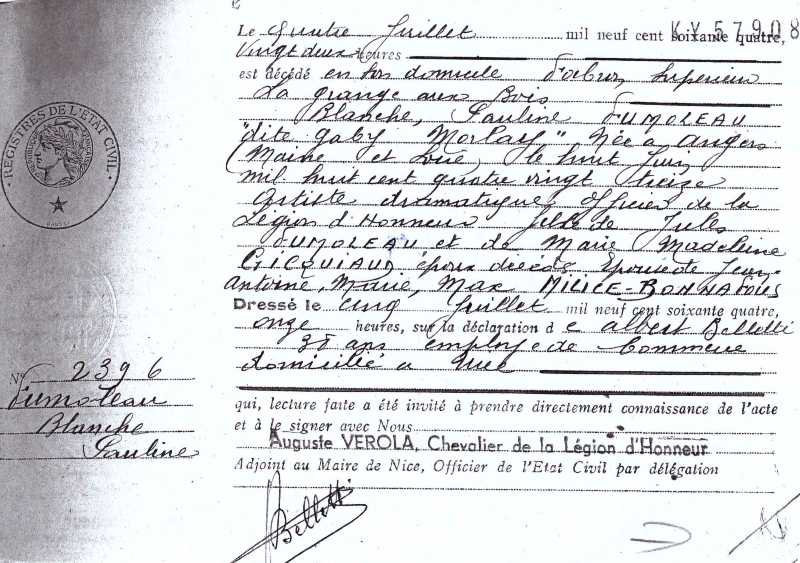 Le quatre Juillet mil neuf cent soixante quatre,
KV57908
Vingt deux Heures
est décédé en son domicile
La grange aux Bois
Blanche, Pauline DUMOLEAU
"dite gaby Morlay" Née a Angers
(Maine et Loire, le huit Juin
mil huit cent quatre vingt treize
Artiste dramatique, officier de la
Légion d'Honneur fille de Jules
DUMOLEAU et de Marie Madeleine
GICQUIAUD, époux décédés. Epouse de Jean
Antoine, Marie, Max BONNAFOUS
Dressé le cinq Juillet mil neuf cent soixante quatre,
onze heures, sur la déclaration de Albert Belletti
ans employé de Commerce
domicilié a Nice
qui, lecture faite a été invité à prendre directement connaissance de l'acte
et à le signer avec Nous
Auguste VEROLA, Chevalier de la Légion d'Honneur
Adjoint au Maire de Nice, Officier de l'Etat Civil par délégation
Belletti
REGISTRES DE L'ETAT CIVIL
No 2396
Dumoleau
Blanche
Pauline